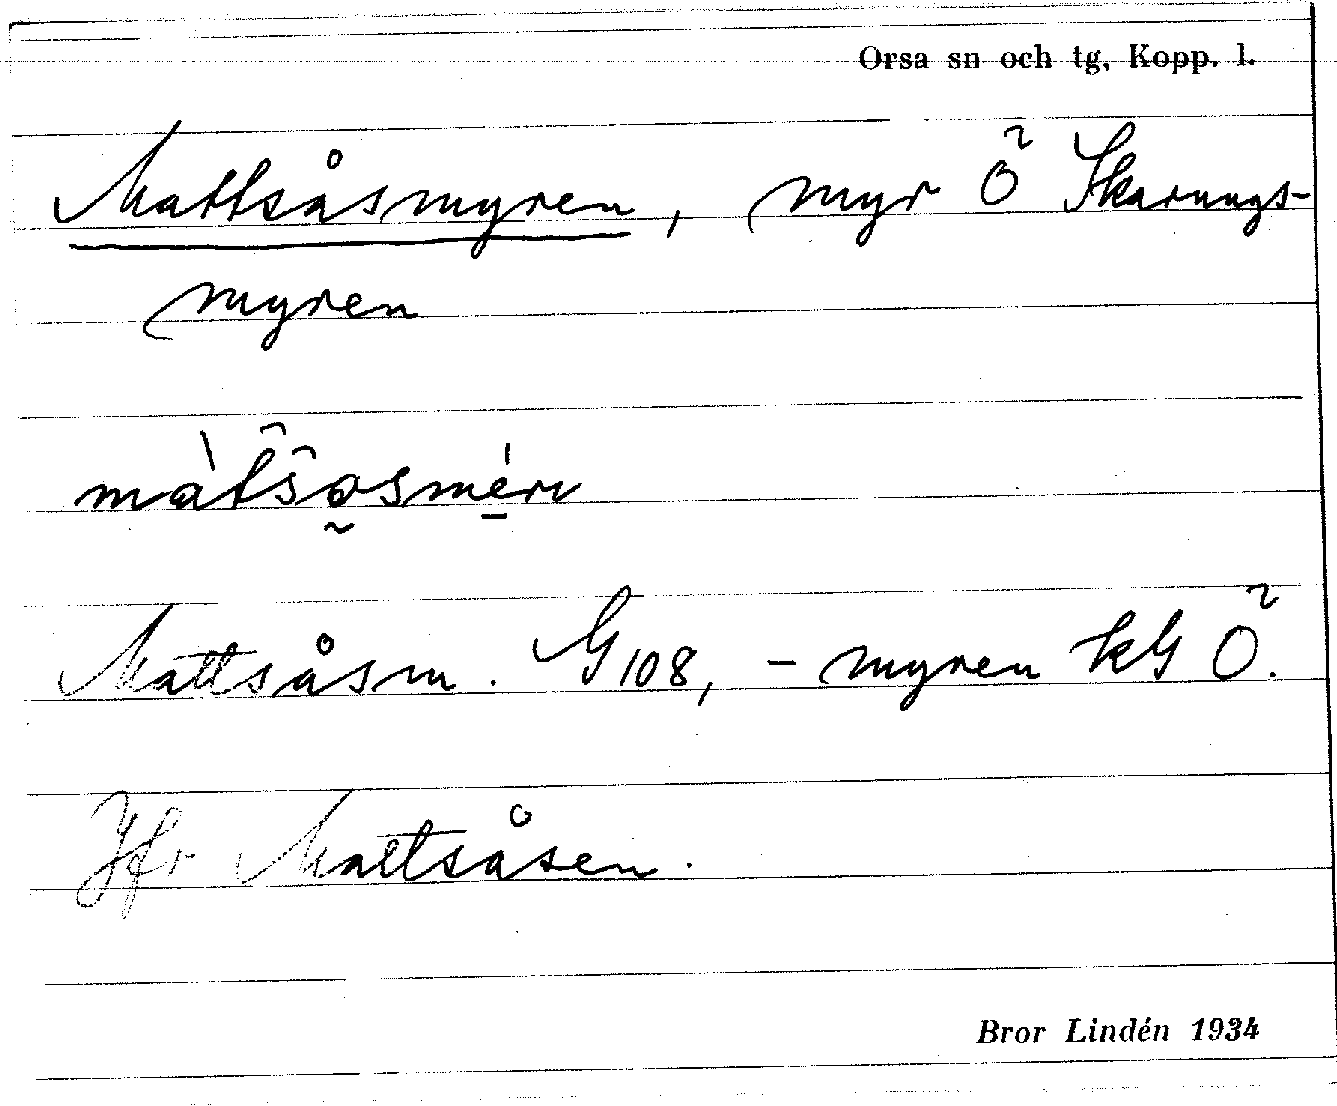 Orsa sn och tg, Kopp. l.
Mattsåsmyren, myr Ö Skarungs-
myren
Mattsåsm. G108, - myren kG Ö.
Jfr Mattsåsen.
Bror Lindén 1934